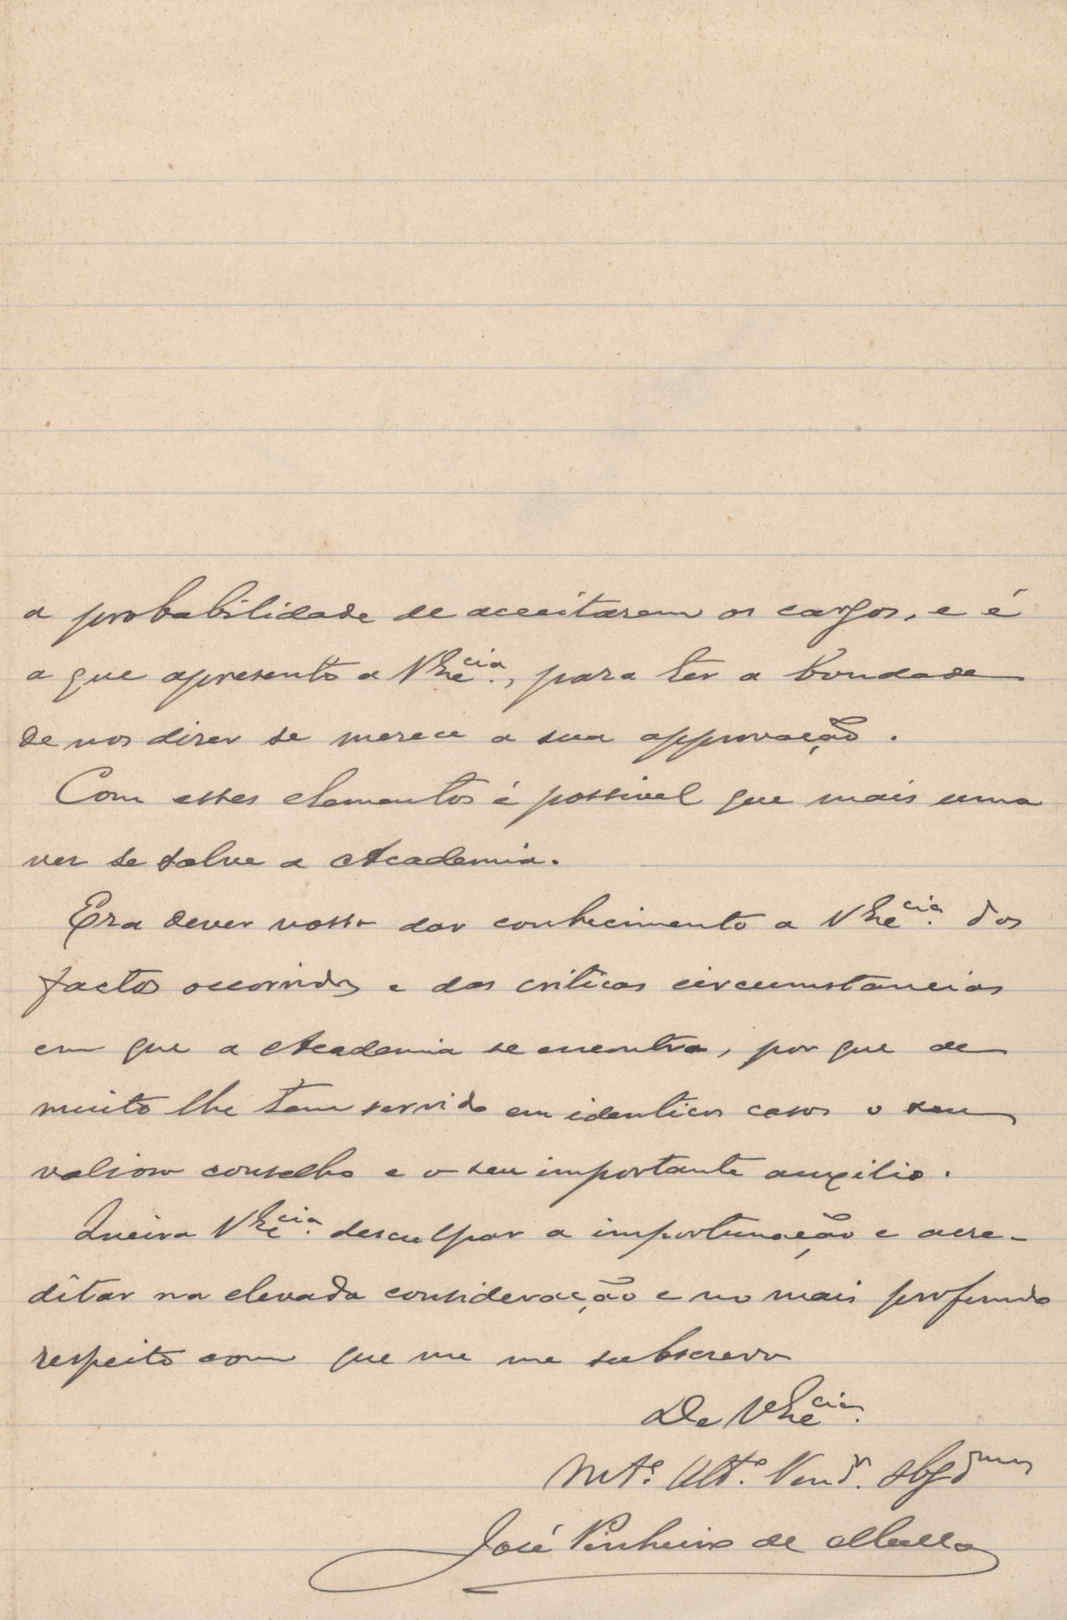 a probabilidade de acceitarem os cargos, e é
a que apresento a V Exc.cia, para ter a bondade
de nos dizer se merece a sua approvação.
Com estes elementos é possivel que mais uma
vez se salve a Academia.
Era dever nosso dar conhecimento a V Exc.cia dos
factos occorridos e das criticas circumstancias
em que a Academia se encontra, por que de
muito lhe tem servido em identicos casos o seu
valioso conselho e o seu importante auxilio.
Queira V Exc.cia desculpar a importunação e acre-
ditar na elevada consideração e no mais profundo
respeito com que me me subscrevo
De V Exc.cia
Mt.º Att.º Vend.r obgd.mo
José Pinheiro de Mello